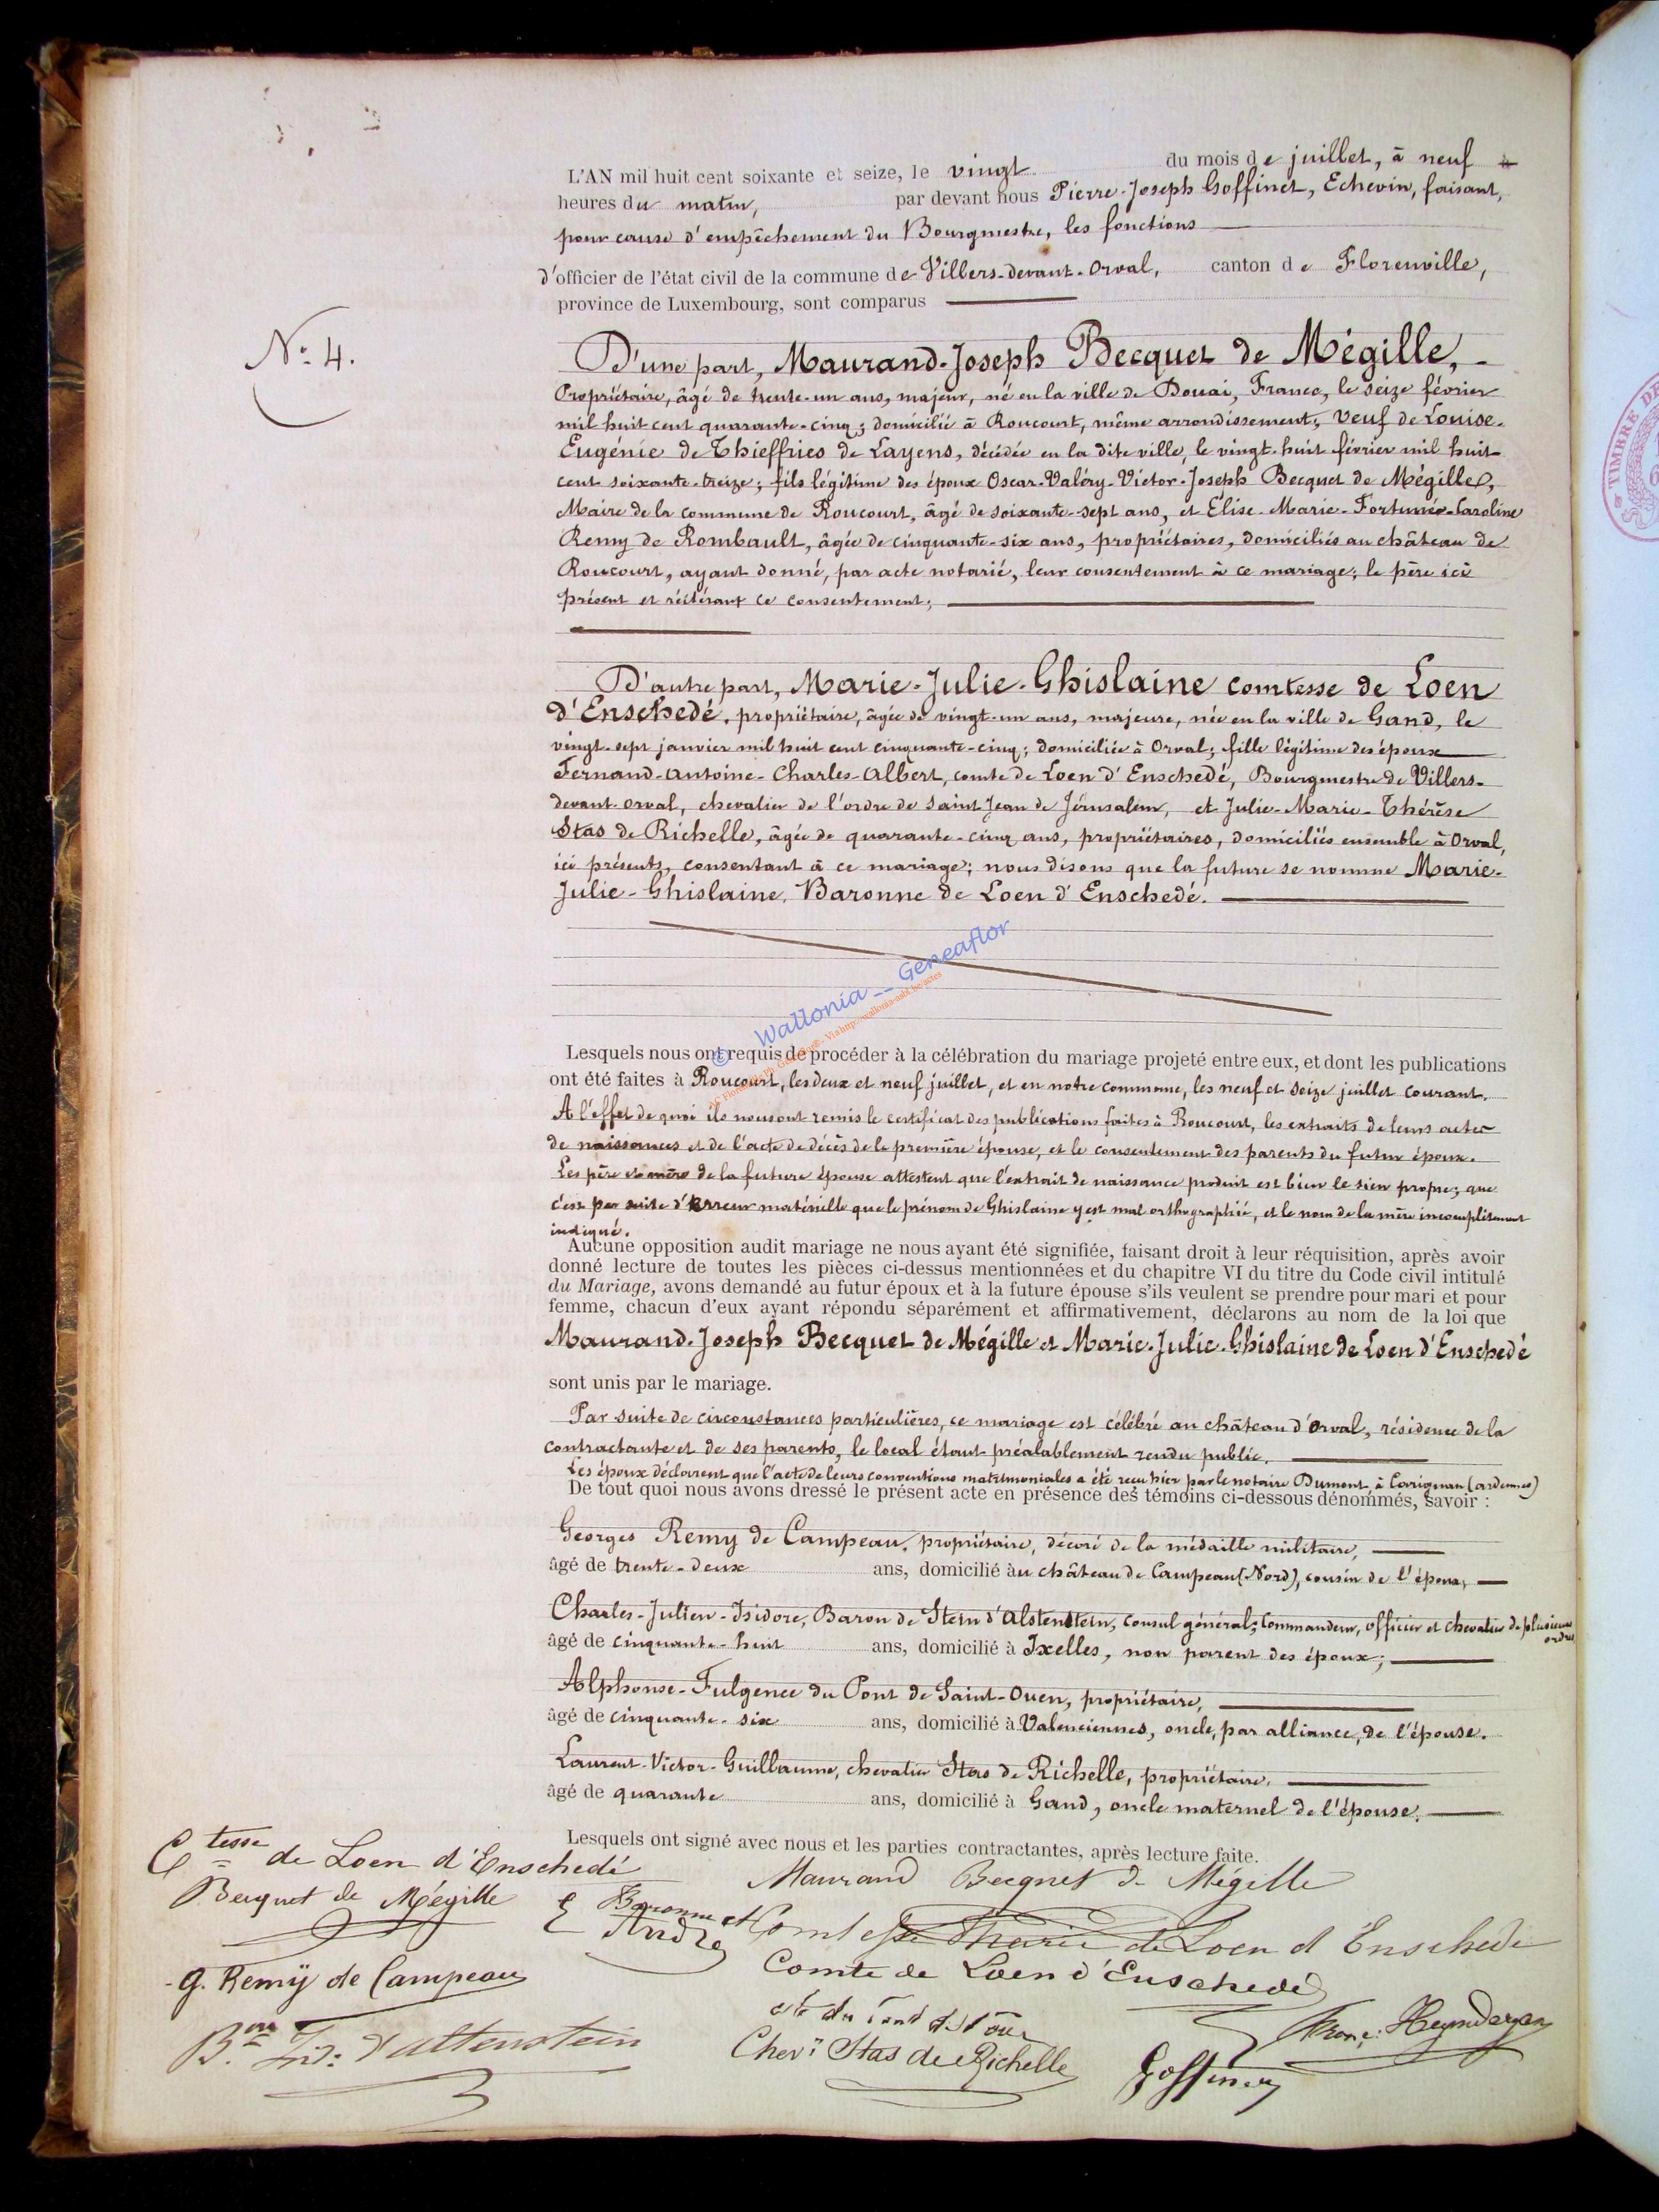 L'AN mil huit cent soixante et seize, le vingt du mois de juillet, à neuf
heures du matin, par devant nous Pierre-Joseph Goffinet, Echevin, faisant,
pour cause d'empêchement du Bourgmestre, les fonctions
d'officier de l'état civil de la commune de Villers-devant-Orval, canton de Florenville,
province de Luxembourg, sont comparus
N° 4.
D'une part, Maurand-Joseph Becquet de Mégille,
Propriétaire, âgé de trente-un ans, majeur, né en la ville de Douai, France, le seize février
mil huit cent quarante-cinq; domicilié à Roucourt, même arrondissement; Veuf de Louise-
Eugénie de Thieffries de Layens, décédée en la dite ville, le vingt-huit février mil huit
cent soixante-treize; fils légitime des époux Oscar-Valéry-Victor-Joseph Becquet de Mégille,
Maire de la commune de Roucourt, âgé de soixante-sept ans, et Elise-Marie-Fortunée-Caroline
Remy de Rombault, âgée de cinquante-six ans, propriétaires, domiciliés au château de
Roucourt, ayant donné, par acte notarié, leur consentement à ce mariage; le père ici
présent et réitérant ce consentement;
D'autre part, Marie-Julie-Ghislaine comtesse de Loen
d'Enschedé, propriétaire, âgée de vingt-un ans, majeure, née en la ville de Gand, le
vingt-sept janvier mil huit cent cinquante-cinq; domiciliée à Orval; fille légitime des époux
Fernand-Antoine-Charles-Albert, comte de Loen d'Enschedé, Bourgmestre de Villers-
devant-Orval, chevalier de l'ordre de Saint Jean de Jérusalem, et Julie-Marie-Thérèse
Stas de Richelle, âgée de quarante-cinq ans, propriétaires, domiciliés ensemble à Orval,
ici présents, consentant à ce mariage; nous disons que la future se nomme Marie-
Julie-Ghislaine, Baronne de Loen d'Enschedé.
© Wallonia __ Geneaflor
Lesquels nous ont requis de procéder à la célébration du mariage projeté entre eux, et dont les publications
ont été faites à Roucourt, les deux et neuf juillet, et en notre commune, les neuf et seize juillet courant.
A l'effet de quoi ils nous ont remis le certificat des publications faites à Roucourt, les extraits de leurs actes
de naissances et de l'acte de décès de la première épouse, et le consentement des parents du futur époux.
Les père et mère de la future épouse attestent que l'extrait de naissance produit est bien le sien propre; que
c'est par suite d'Erreur matérielle que le prénom de Ghislaine y est mal orthographié, et le nom de la mère incomplètement
indiqué.
Aucune opposition audit mariage ne nous ayant été signifiée, faisant droit à leur réquisition, après avoir
donné lecture de toutes les pièces ci-dessus mentionnées et du chapitre VI du titre du Code civil intitulé
du Mariage, avons demandé au futur époux et à la future épouse s'ils veulent se prendre pour mari et pour
femme, chacun d'eux ayant répondu séparément et affirmativement, déclarons au nom de la loi que
Maurand-Joseph Becquet de Mégille et Marie-Julie-Ghislaine de Loen d'Enschedé
sont unis par le mariage.
Par suite de circonstances particulières, ce mariage est célébré au château d'Orval, résidence de la
contractante et de ses parents, le local étant préalablement rendu public.
Les époux déclarent que l'acte de leurs conventions matrimoniales a été reçu hier par le notaire Dumont, à Carignan (ardennes)
De tout quoi nous avons dressé le présent acte en présence des témoins ci-dessous dénommés, savoir :
Georges Remy de Campeau, propriétaire, décoré de la médaille militaire,
âgé de trente-deux ans, domicilié au château de Campeau (Nord), cousin de l'époux,
Charles-Julien-Isidore, Baron de Stein d'Altenstein, consul général, Commandeur, officier et chevalier de plusieurs
ordres
âgé de cinquante-huit ans, domicilié à Ixelles, non parent des époux;
Alphonse-Fulgence du Pont de Saint-Ouen, propriétaire,
âgé de cinquante-six ans, domicilié à Valenciennes, oncle, par alliance, de l'épouse.
Laurent-Victor-Guillaume, chevalier Stas de Richelle, propriétaire,
âgé de quarante ans, domicilié à Gand, oncle maternel de l'épouse.
Lesquels ont signé avec nous et les parties contractantes, après lecture faite.
Ctesse de Loen d'Enschedé
Maurand Becquet de Mégille
Becquet de Mégille
Comtesse Marie de Loen d'Enschedé
G. Remÿ de Campeau
Comte de Loen d'Enschedé
Bon d'Altenstein
Chevr Stas de Richelle
Goffinet
TIMBRE DE